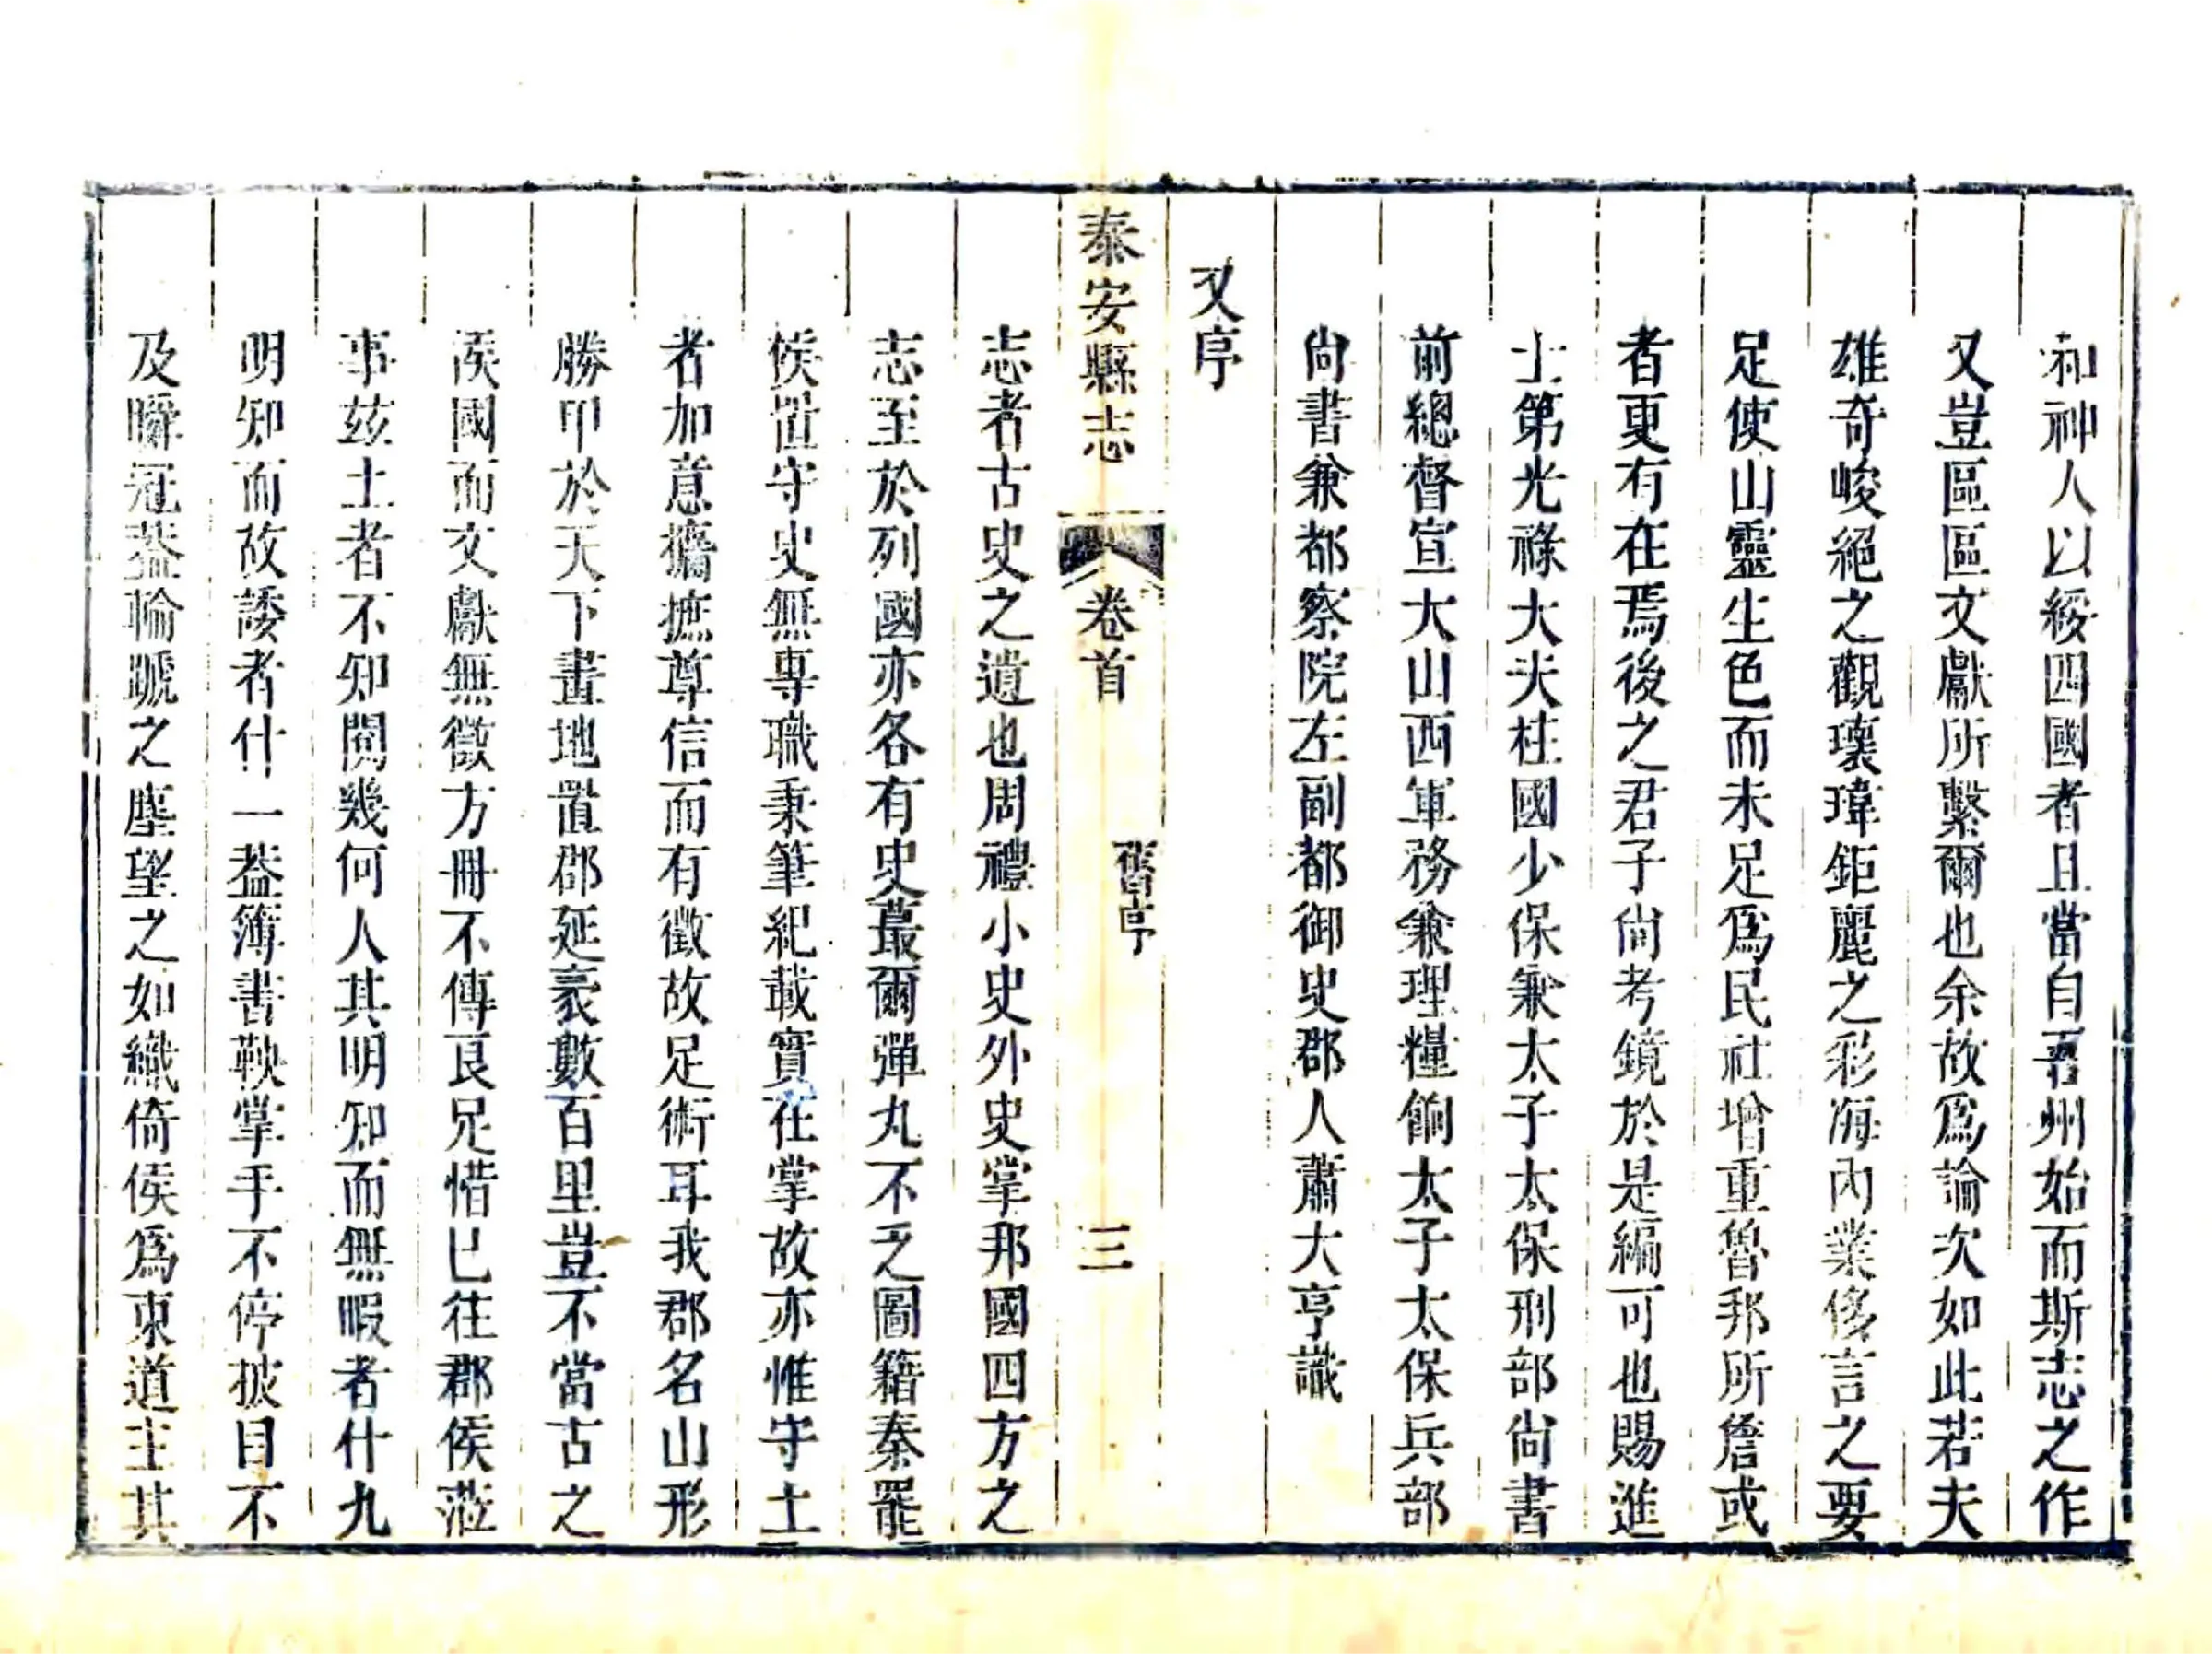 和神人以綏四國者且當自吾州始而斯志之作
又豈區區文獻所繫爾也余故爲論次如此若夫
雄奇峻絕之觀瓌瑋鉅麗之彩海內業侈言之要
足使山靈生色而未足爲民社增重魯邦所詹或
者更有在焉後之君子尙考鏡於是編可也賜進
士第光祿大夫柱國少保兼太子太保刑部尙書
前總督宣大山西軍務兼理糧餉太子太保兵部
尙書兼都察院左副都御史郡人蕭大亨識
又序
泰安縣志
卷首
舊序
三
志者古史之遺也周禮小史外史掌邦國四方之
志至於列國亦各有史蕞爾彈丸不乏圖籍秦罷
侯置守史無專職秉筆紀載實在掌故亦惟守土
者加意擴摭尊信而有徵故足術耳我郡名山形
勝甲於天下畫地置郡延袤數百里豈不當古之
侯國而文獻無徵方冊不傳良足惜已往郡侯蒞
事茲土者不知閱幾何人其明知而無暇者什九
明知而故諉者什一蓋簿書鞅掌手不停披目不
及瞬冠蓋輪蹏之塵望之如織倚侯爲東道主其